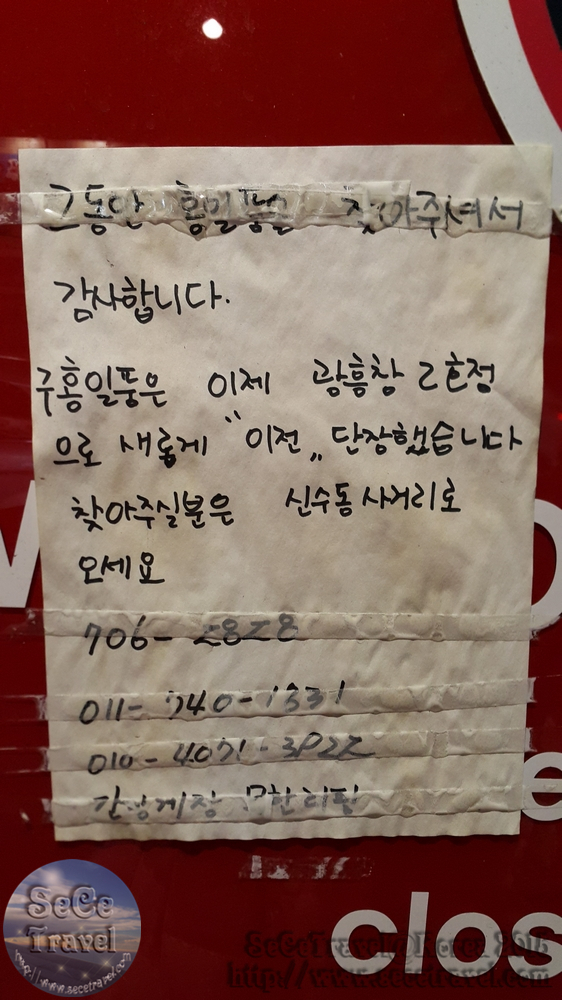 그동안 홍일품을 찾아주셔서
감사합니다.
주홍일품은 이제 광흥창 2호점
으로 새롭게 "이전" 단장했습니다
찾아주실분은 신수동 사거리로
오세요
706-2828
011-740-1331
간장게장 무한리필
e
clos
SeCe
Travel
SeCeTravel@Korea 2016
http://www.secetravel.com